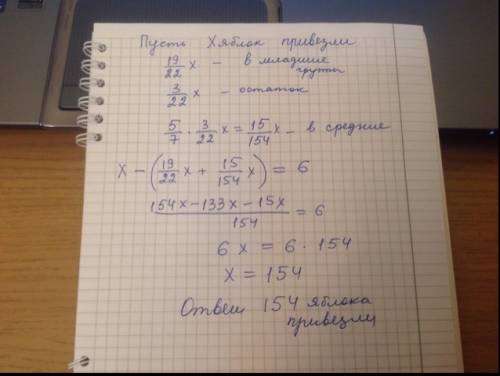 Пусть X яблок привезли
19/22 x - в младшие группы
3/22 x - остаток
5/7 · 3/22 x = 15/154 x - в средние
X - (19/22 x + 15/154 x) = 6
154x - 133x - 15x / 154 = 6
6x = 6 · 154
x = 154
Ответ 154 яблока
привезли